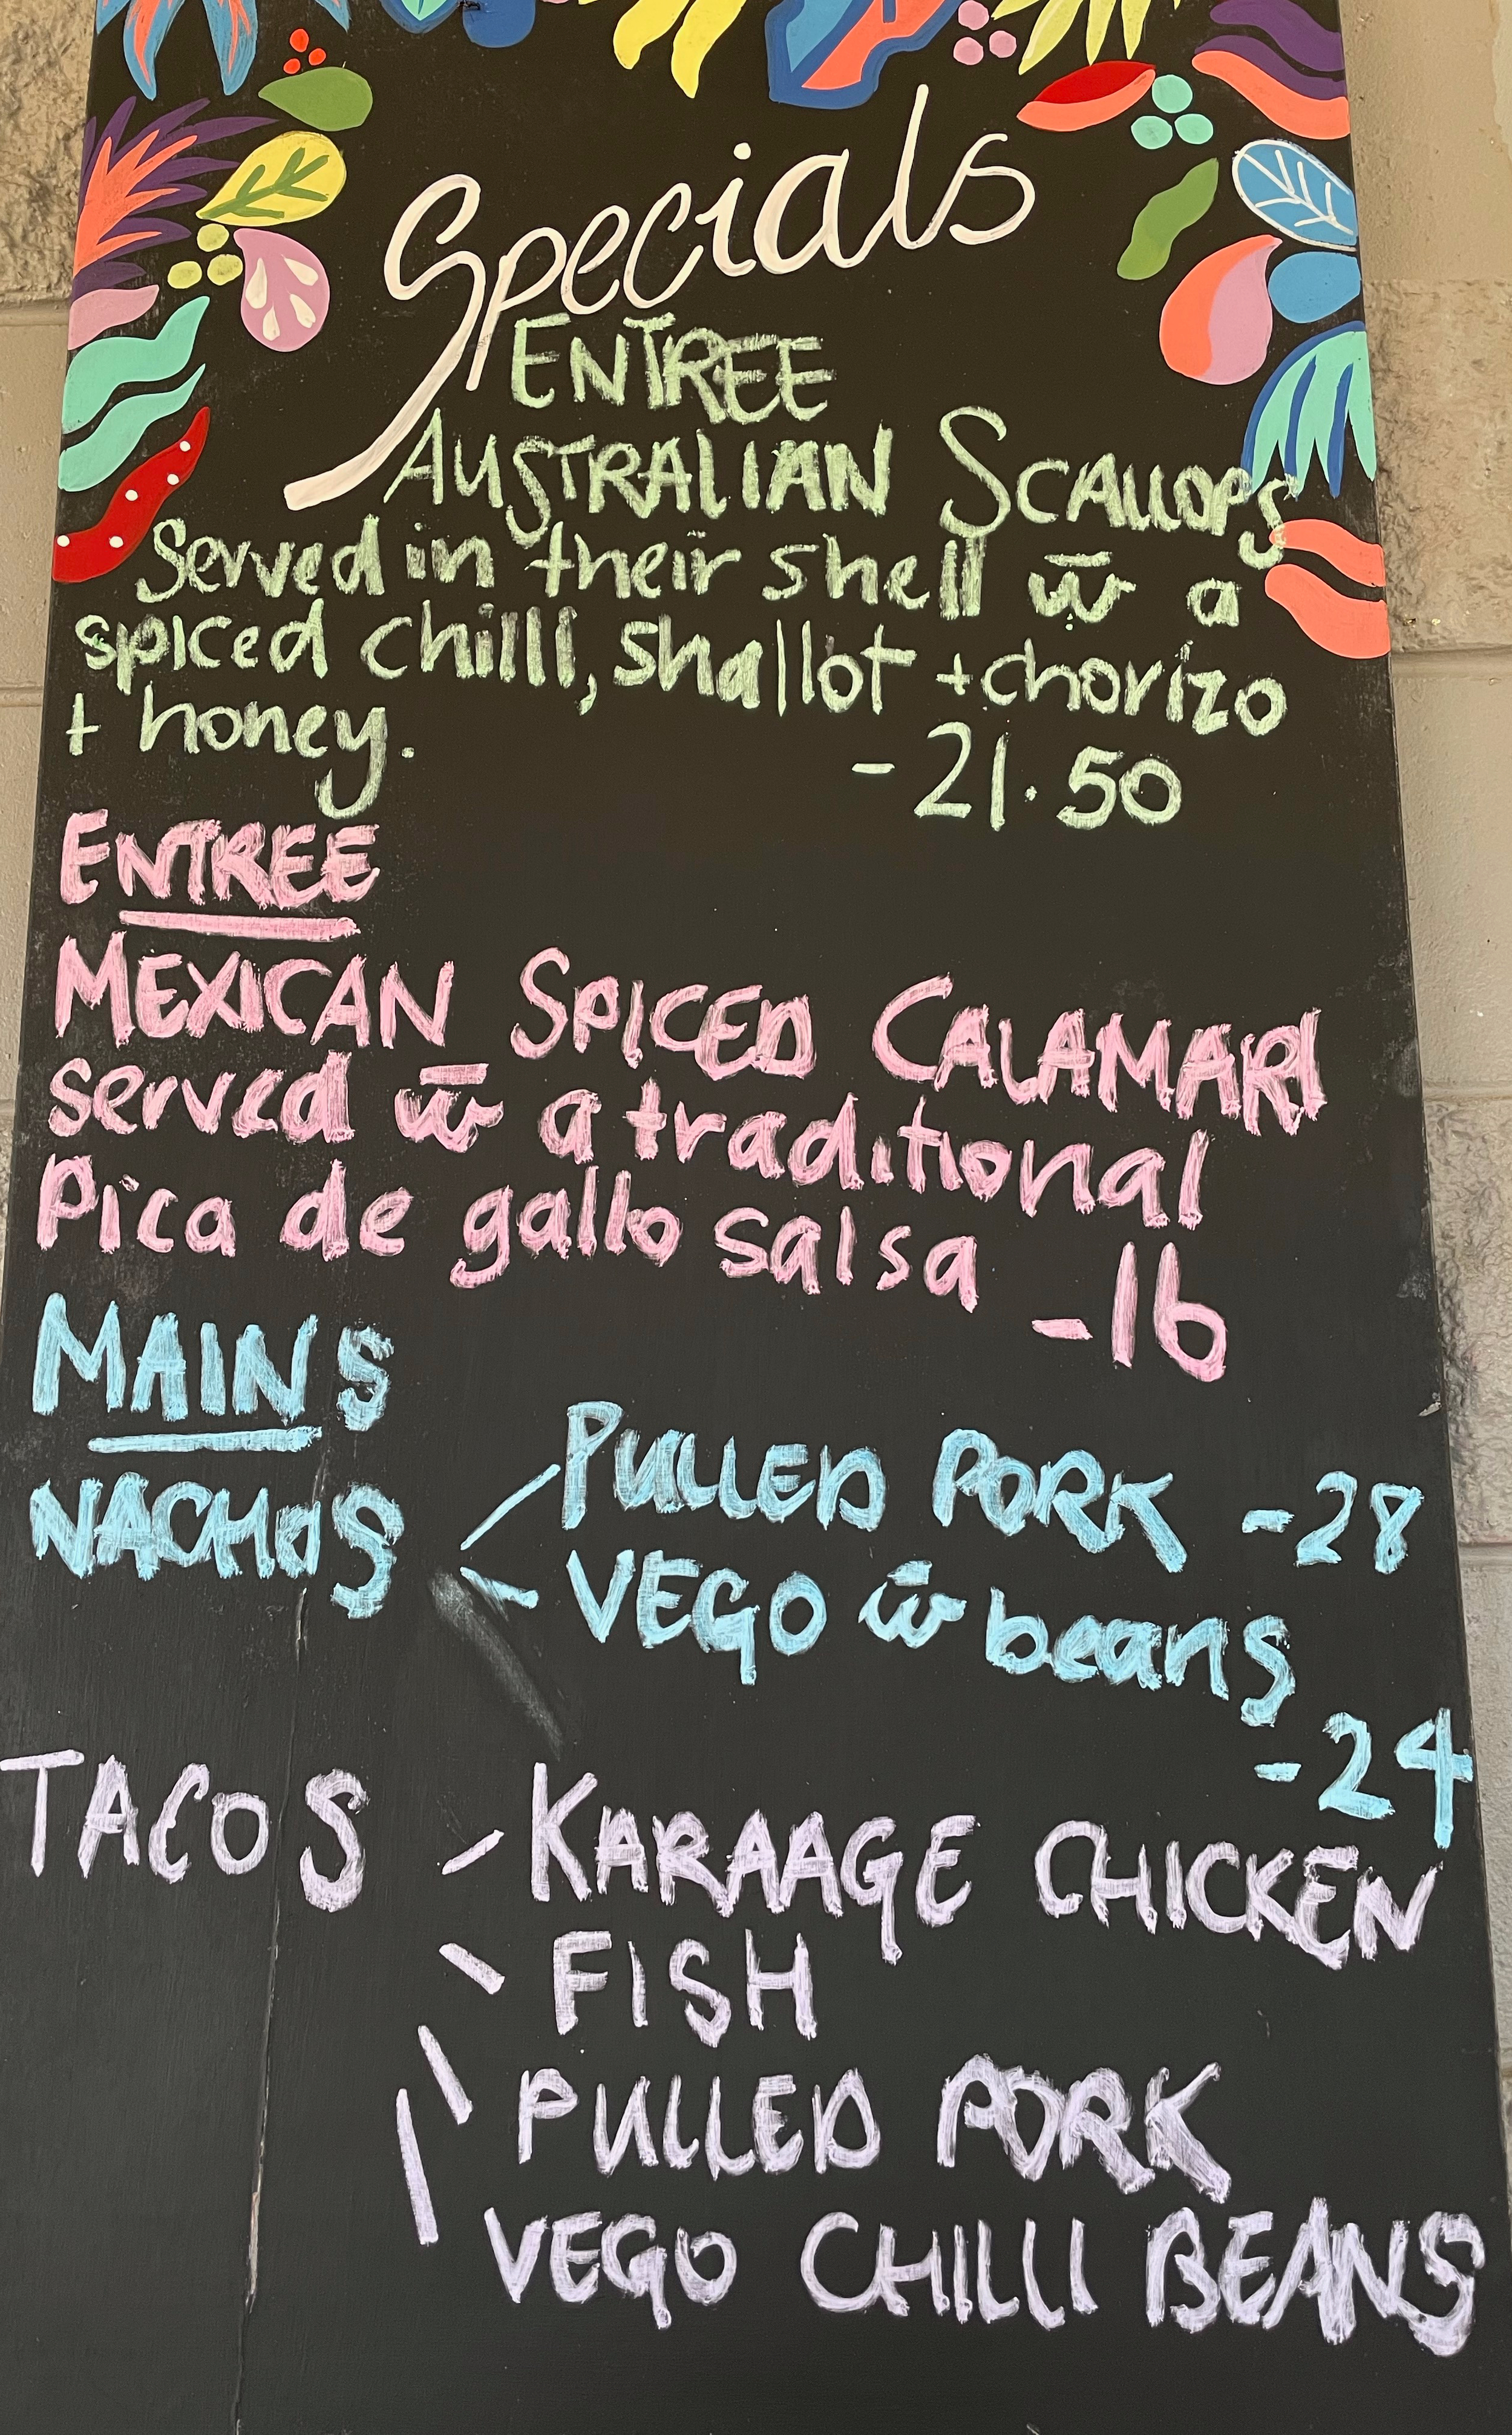 Specials
ENTREE
AUSTRALIAN SCALLOPS
Served in their shell w̄ a
spiced chilli, shallot + chorizo
+ honey.
- 21.50
ENTREE
MEXICAN SPICED CALAMARI
served w̄ a traditional
Pica de gallo salsa - 16
MAINS
NACHOS PULLED PORK - 28
VEGO w̄ beans
- 24
TACOS - KARAAGE CHICKEN
FISH
PULLED PORK
VEGO CHILLI BEANS